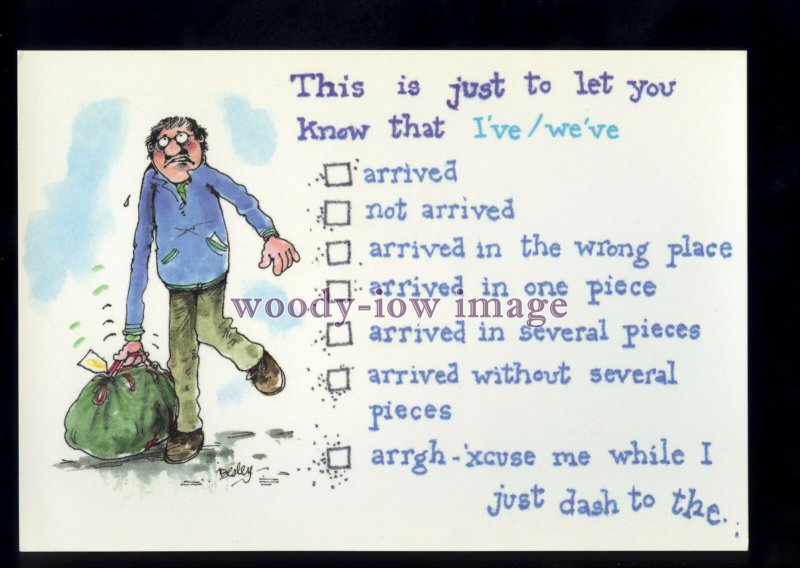 This is just to let you
know that I've/we've
arrived
not arrived
arrived in the wrong place
arrived in one piece
woody-iow image
arrived in several pieces
arrived without several
pieces
arrgh-'xcuse me while I
just dash to the..
Besley